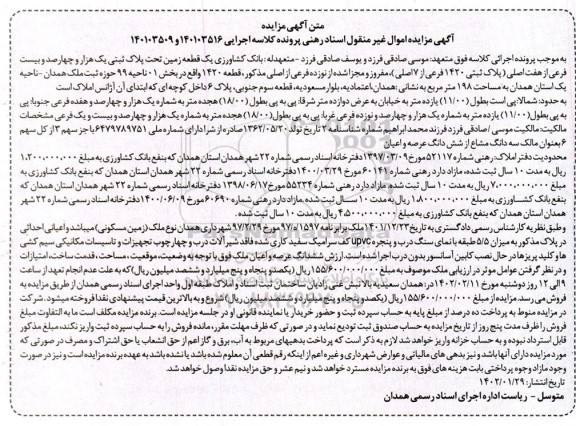 متن آگهی مزایده
آگهی مزایده اموال غیر منقول اسناد رهنی پرونده کلاسه اجرایی ۱۴۰۱۰۳۵۱۶ و ۱۴۰۱۰۳۵۰۹
به موجب پرونده اجرائی کلاسه فوق متعهد: موسی صادقی فرزد و یوسف صادقی فرزد - متعهدله: بانک کشاورزی یک قطعه زمین تحت پلاک ثبتی یک هزار و چهارصد و بیست
فرعی از هفت اصلی ( پلاک ثبتی ۱۴۲۰ فرعی از ۷ اصلی )، مفروز و مجزا شده از نوزده فرعی از اصلی مذکور، قطعه ۱۴۲۰ واقع در بخش ۰۱ ناحیه ۹۹ حوزه ثبت ملک همدان - ناحیه
یک استان همدان به مساحت ۱۹۸ متر مربع به نشانی: همدان، اعتمادیه، بلوار مسعودیه، قطعه سوم جنوبی، پلاک ۶ داخل کوچه ای که ابتدای آن آژانس املاک است
به حدود: شمالا: پی است بطول (۱۱/۰۰) یازده متر به خیابان به عرض دوازده متر شرقا: پی به پی بطول (۱۸/۰۰) هجده متر به شماره یک هزار و چهارصد و هفده فرعی جنوبا: پی
به پی بطول (۱۱/۰۰) یازده متر به شماره یک هزار و چهارصد و نوزده فرعی غربا: پی به پی بطول (۱۸/۰۰) هجده متر به شماره یک هزار و چهارصد و بیست و یک فرعی مشخصات
مالکیت: مالکیت موسی / صادقی فرزد فرزند محمدابراهیم شماره شناسنامه ۲ تاریخ تولد ۱۳۶۲/۰۵/۲۰ صادره از شرا دارای شماره ملی ۶۴۷۹۷۸۹۷۵۱ با جز سهم ۳ از کل سهم
۶ بعنوان مالک سه دانگ مشاع از شش دانگ عرصه و اعیان
محدودیت دفتر املاک: رهنی شماره ۵۲۱۱۷ مورخ ۱۳۹۷/۰۳/۰۹ دفترخانه اسناد رسمی شماره ۲۲ شهر همدان استان همدان که بنفع بانک کشاورزی به مبلغ ۱،۲۰۰،۰۰۰،۰۰۰
ریال به مدت ۱۰ سال ثبت شده، مازاد دارد رهنی شماره ۶۰۱۴۱ مورخ ۱۴۰۰/۰۳/۲۹ دفترخانه اسناد رسمی شماره ۲۲ شهر همدان استان همدان که بنفع بانک کشاورزی به
مبلغ ۷،۰۰۰،۰۰۰،۰۰۰ ریال به مدت ۱۰ سال ثبت شده، مازاد دارد رهنی شماره ۵۵۲۳۴ مورخ ۱۳۹۸/۰۶/۱۷ دفترخانه اسناد رسمی شماره ۲۲ شهر همدان استان همدان که
بنفع بانک کشاورزی به مبلغ ۱،۸۰۰،۰۰۰،۰۰۰ ریال به مدت ۱۰ سال ثبت شده، مازاد دارد رهنی شماره ۶۰۶۹۰ مورخ ۱۴۰۰/۰۶/۰۹ دفترخانه اسناد رسمی شماره ۲۲ شهر
همدان استان همدان که بنفع بانک کشاورزی به مبلغ ۴،۵۰۰،۰۰۰،۰۰۰ ریال به مدت ۱۰ سال ثبت شده.
و طبق نظریه کارشناس رسمی دادگستری به تاریخ ۱۴۰۱/۱۲/۲۳ ملک برابر نامه ۹۷/۵/۱۵۹۷ مورخ ۹۷/۲/۲۹ شهرداری همدان نوع ملک (زمین مسکونی) میباشد و اعیانی احداثی
در پلاک مذکور به میزان ۵/۵ طبقه با نمای سنگ درب و پنجره upvc کف سرامیک سفید کاری شده فاقد شیرآلات درب و چهارچوب تجهیزات و تاسیسات مکانیکی سیم کشی
ها و کلید پریزها در حال نصب کابین آسانسور بدون درب اجرا شده است. ارزش ششدانگ عرصه و اعیان ملک فوق با توجه به وضعیت، موقعیت، مساحت، قدمت ساخت، امتیازات
و در نظر گرفتن عوامل موثر در ارزیابی ملک موصوف به مبلغ ۱۵۵/۶۰۰/۰۰۰/۰۰۰ ریال (یکصد و پنجاه و پنج میلیارد و ششصد میلیون ریال) که به علت عدم انجام تعهد از ساعت
۹ الی ۱۲ روز دوشنبه مورخ ۱۴۰۲/۰۲/۱۱ در: همدان سعیدیه بالا نبش علی رادیان ساختمان ثبت اسناد و املاک همدان اول واحد اجرای اسناد رسمی همدان از طریق مزایده به
فروش می رسد. مزایده از مبلغ ۱۵۵/۶۰۰/۰۰۰/۰۰۰ ریال (یکصد و پنجاه و پنج میلیارد و ششصد میلیون ریال) شروع و به بالاترین قیمت پیشنهادی نقدا فروخته میشود. شرکت
در مزایده منوط به پرداخت ده درصد از مبلغ پایه به حساب سپرده ثبت و حضور خریدار یا نماینده قانونی او در جلسه مزایده است. برنده مزایده مکلف است ما به التفاوت مبلغ
فروش را ظرف مدت پنج روز از تاریخ مزایده به حساب صندوق ثبت تودیع نماید و در صورتی که ظرف مهلت مقرر، مانده فروش را به حساب سپرده ثبت واریز نکند، مبلغ مذکور
قابل استرداد نبوده و به حساب خزانه واریز خواهد شد لازم به ذکر است که پرداخت بدهیهای مربوط به آب، برق و گاز اعم از حق انشعاب یا حق اشتراک و مصرف در صورتی که
مورد مزایده دارای آنها باشد و نیز بدهی های مالیاتی و عوارض شهرداری و غیره اعم از اینکه رقم قطعی آن معلوم شده باشد یا نشده باشد به عهده برنده مزایده است و نیز در صورت
وجود مازاد وجوه پرداختی بابت هزینه های فوق به برنده مزایده مسترد خواهد شد و نیم عشر و حق مزایده نقدا وصول خواهد شد.
تاریخ انتشار: ۱۴۰۲/۰۱/۲۹
متوسل - ریاست اداره اجرای اسناد رسمی همدان